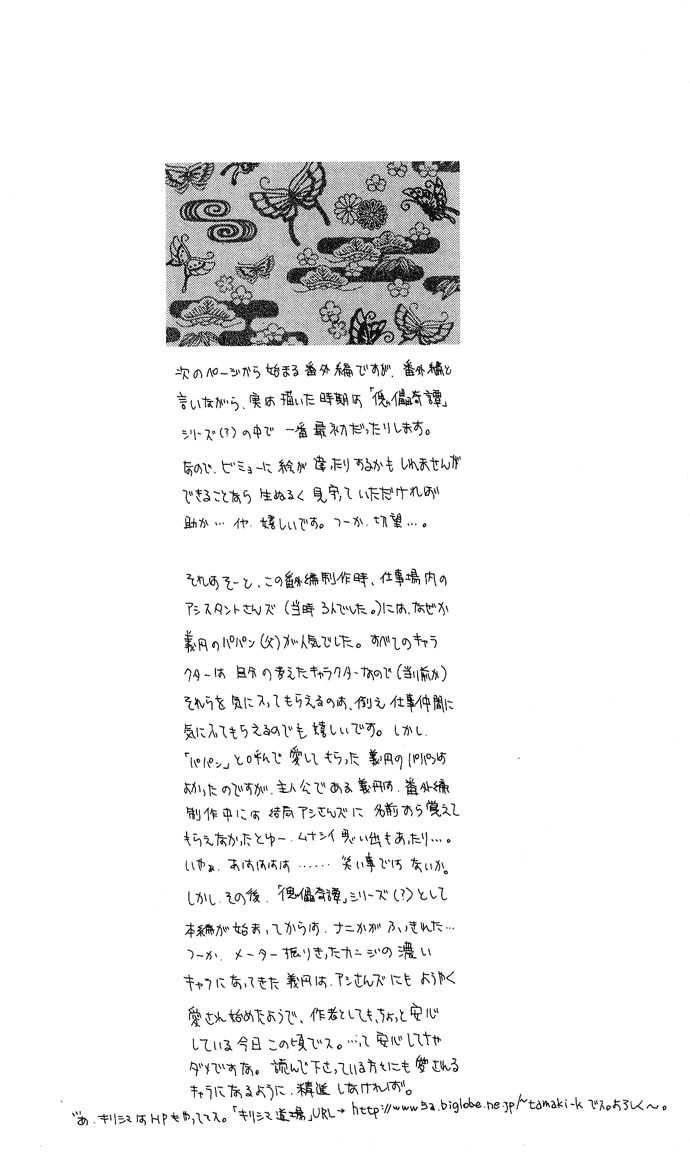 次のページから始まる番外編ですが、番外編と
言いながら、実は描いた時期は「傀儡奇譚」
シリーズ(?)の中で一番最初だったりします。
なので、ビミョーに絵が違ったりするかもしれませんが
できることなら生ぬるく見守っていただければ
助か…イヤ、嬉しいです。つーか、切望…。
それはそーと、この番外編制作時、仕事場内の
アシスタントさんズ(当時3人でした。)には、なぜか
義円のパパン(父)が人気でした。すべてのキャラ
クターは自分の考えたキャラクターなので(当り前か)
それらを気に入ってもらえるのは、例え仕事仲間に
気に入ってもらえるのでも嬉しいです。しかし、
「パパン」と呼んで愛してもらった義円のパパンは
よかったのですが、主人公である義円は、番外編
制作中には結局アシさんズに名前すら覚えて
もらえなかったとゆー、ムナシイ思い出もあったり…。
いやぁ、あははははは……笑い事ではないか。
しかし、その後、「傀儡奇譚」シリーズ(?)として
本編が始まってからは、ナニかがふっきれた…
つーか、メーター振りきったカンジの濃い
キャラになってきた義円は、アシさんズにもようやく
愛され始めたようで、作者としても、ちょっと安心
している今日この頃でス。…って安心してちゃ
ダメですな。読んで下さっている方々にも愛される
キャラになるように、精進しなければ。
あ、キリシマはHPもやってマス。「キリシマ道場」URL→ http://www5a.biglobe.ne.jp/~tamaki-k でス。よろしく～。